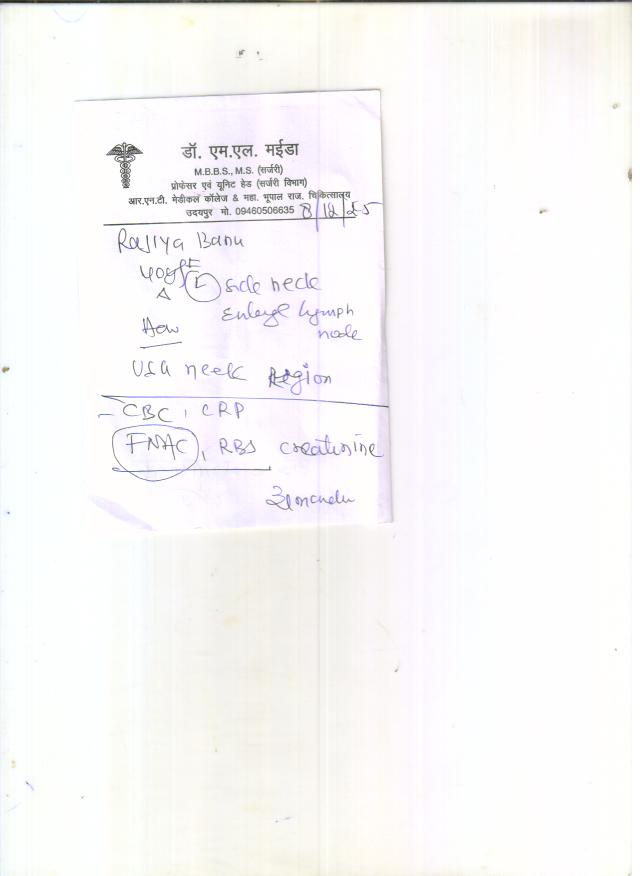 डॉ. एम.एल. मईडा
M.B.B.S., M.S. (सर्जरी)
प्रोफेसर एवं यूनिट हेड (सर्जरी विभाग)
आर.एन.टी. मेडीकल कॉलेज & महा. भूपाल राज. चिकित्सालय
उदयपुर मो. 09460506635 8/12/25
Rajiya Banu
40y/F
Δ (L) side neck
Enlarge lymph
node
Adv
USG neck Region
- CBC, CRP
FNAC, RBS creatinine